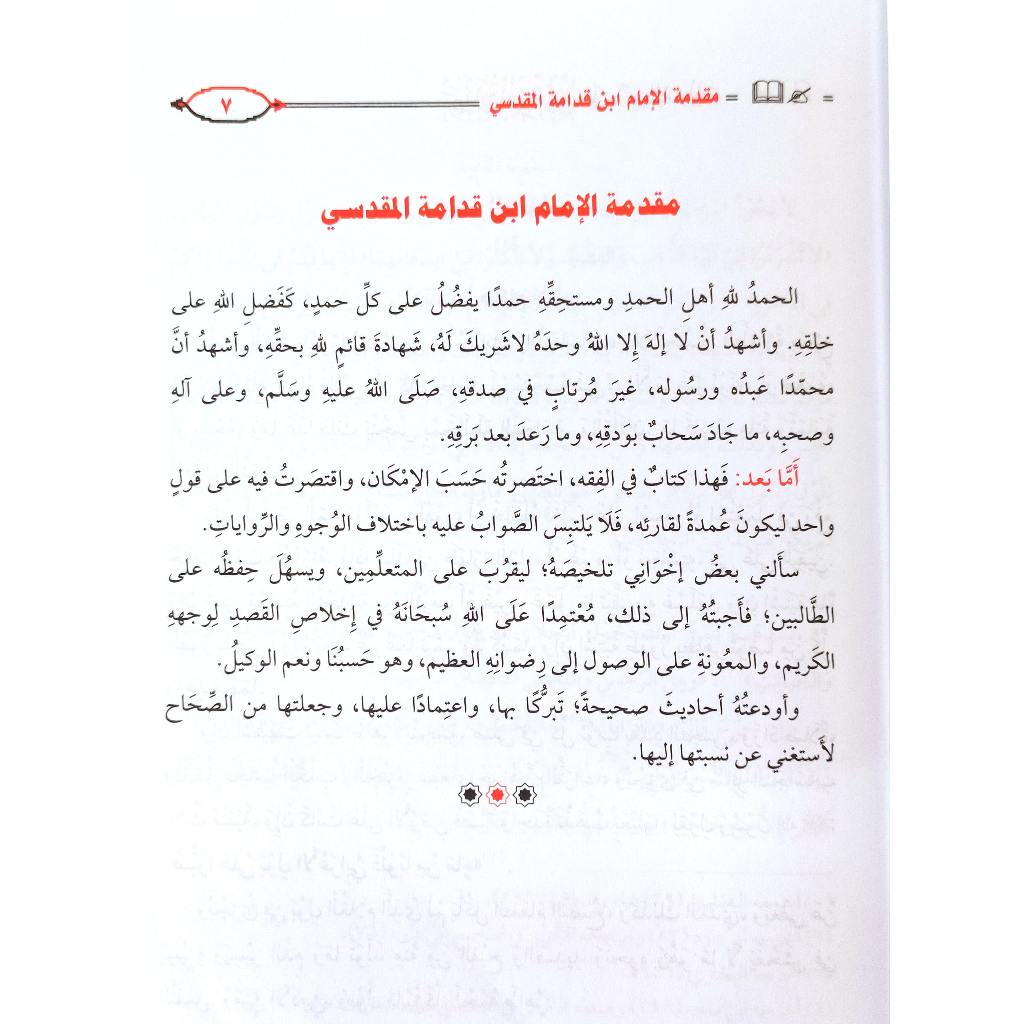 = مقدمة الإمام ابن قدامة المقدسي = ٧
مقدمة الإمام ابن قدامة المقدسي
الحمدُ للهِ أهلِ الحمدِ ومستحِقِّهِ حمدًا يفضُلُ على كلِّ حمدٍ، كَفَضلِ اللهِ على
خلقِهِ. وأشهدُ أنْ لا إلهَ إِلا اللهُ وحدَهُ لاشَريكَ لَهُ، شَهادةَ قائمٍ للهِ بحقِّهِ، وأشهدُ أنَّ
محمّدًا عَبدُه ورسُوله، غيرَ مُرتابٍ في صدقه، صَلَى اللهُ عليهِ وسَلَّم، وعلى آلهِ
وصحبِه، ما جَادَ سَحابٌ بوَدقِهِ، وما رَعدَ بعد بَرقِهِ.
أَمَّا بَعد: فَهذا كتابٌ في الفِقه، اختَصرتُه حَسَبَ الإمْكَان، واقتصَرتُ فيه على قولٍ
واحد ليكونَ عُمدةً لقارئِه، فَلَا يَلتبِسَ الصَّوابُ عليه باختلاف الوُجوهِ والرِّواياتِ.
سأَلني بعضُ إخْوَانِي تلخيصَهُ؛ ليقرُبَ على المتعلِّمِين، ويسهُلَ حِفظُه على
الطَّالبين؛ فأَجبتُهُ إلى ذلك، مُعْتمِدًا عَلَى اللهِ سُبحَانَهُ في إخلاصِ القَصدِ لِوجههِ
الكَريم، والمعُونةِ على الوصول إلى رِضوانِهِ العظيم، وهو حَسبُنَا ونعم الوكيلُ.
وأودعتُهُ أحاديثَ صحيحةً؛ تَبرُّكًا بها، واعتِمادًا عليها، وجعلتها من الصِّحَاح
لأَستغني عن نسبتها إليها.